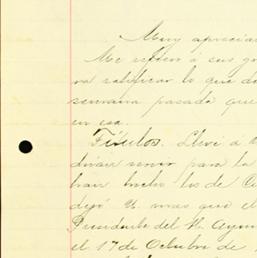 Muy aprecia
Me refiero á sus gr
va ratificar lo que d
semana pasada que
en esa.
Títulos. Llevé á
servir para la
han hecho los de C
dejó. U. mas que el
Presidente del H. Ayun
el 17 de Octubre de